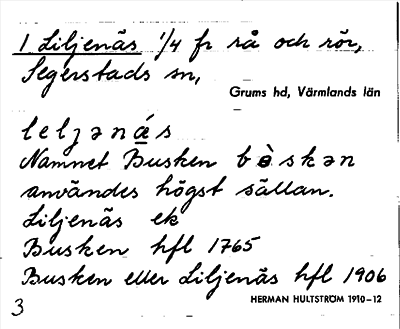 1 Liljenäs 1/4 fr rå och rör,
Segerstads sn,
Grums hd, Värmlands län
leljənás
Namnet Busken bòskən
användes högst sällan.
Liljenäs ek
Busken hfl 1765
Busken eller Liljenäs hfl 1906
3
HERMAN HULTSTRÖM 1910–12